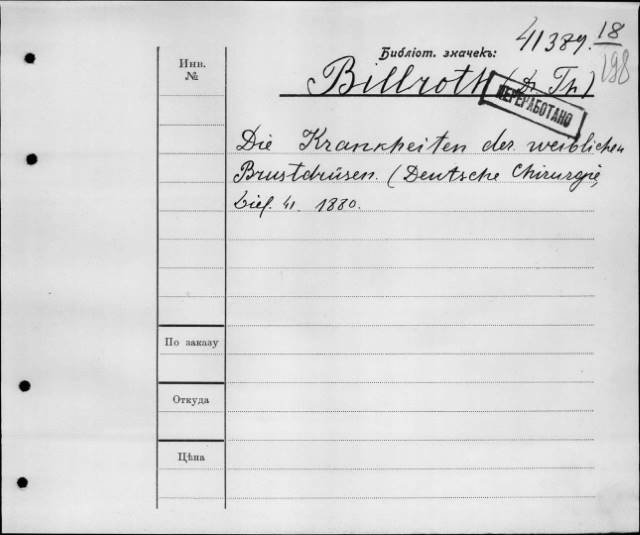 41389. 18
198
Инв. №
Библіот. значекъ:
Billroth (Dr Th.)
ПЕРЕРАБОТАНО
Die Krankheiten der weiblichen
Brustdrüsen. (Deutsche Chirurgie,
Lief. 41. 1880.
По заказу
Откуда
Цѣна